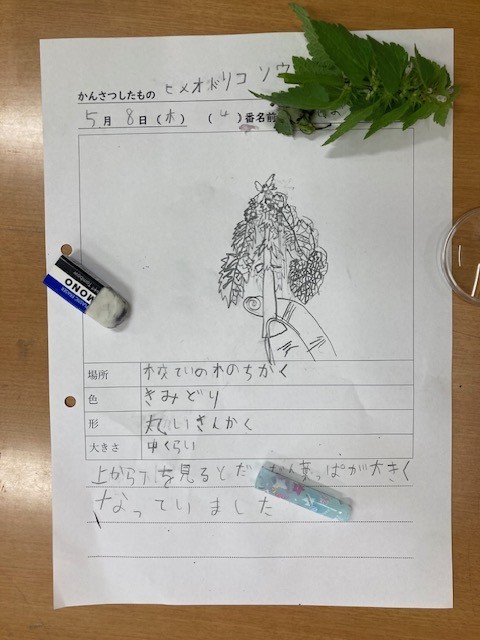 かんさつしたもの ヒメオドリコソウ
5月 8日 (木) (4) 番名前
MONO
場所 校ていの木のちかく
色 きみどり
形 丸いさんかく
大きさ 中くらい
上から下を見るとだ んだん葉っぱが大きく
なっていました